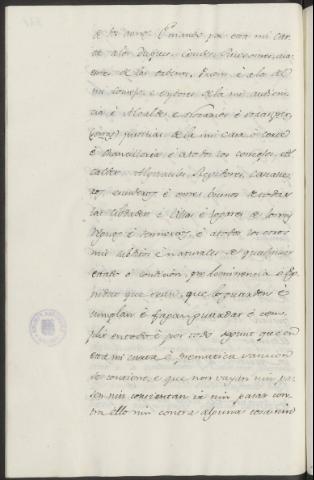 de los Reynos. E mando por esta mi car-
ta à los Duques, Condes, Ricos omes, mar-
queses
del mi consejo, è oydores de la mi audien-
cia è Alcaldes è Notarios è
Justicias de la mi casa è corte
è chancilleria è atodos los concejos, Al-
caldes, Alguaciles, Regidores, cavalle-
ros, escuderos è omes buenos de todas
las cibdades è Villas è logares de los mis
Reynos è señorios, è atodos los otros
mis subditos è naturales de qualquier
estado è condicion, preheminencia è dig-
nidad que sean, que lo guarden è
cumplan è fagan guardar è com-
plir entodo è por todo segunt que en
esta mi carta è prematica sancion
se contiene, e que non vayan nin pa-
sen nin consientan ir nin pasar con-
tra ello nin contra alguna cosa nin